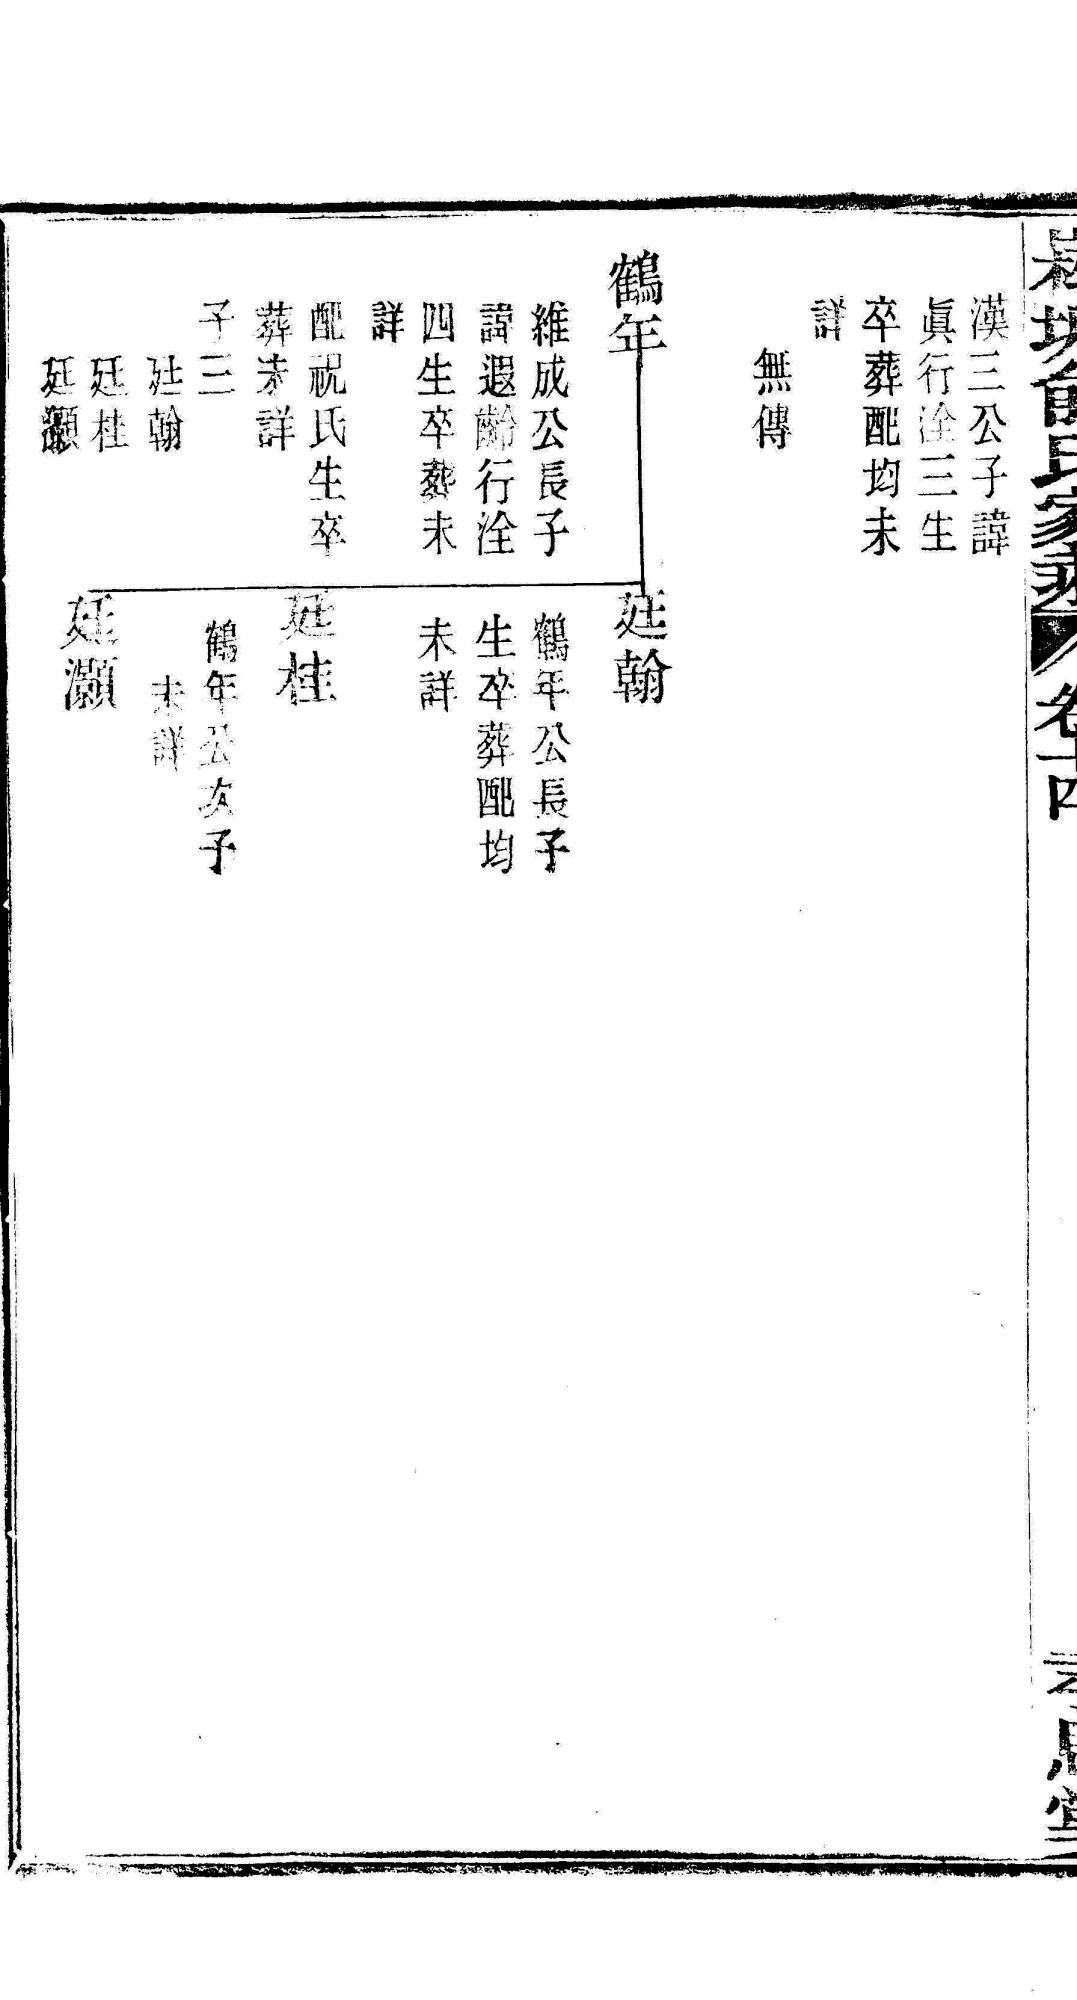 氏家
卷十四
思堂
漢三公子諱
眞行洤三生
卒葬配均未
詳
無傳
鶴年
維成公長子
諱遐齡行洤
四生卒葬未
詳
配祝氏生卒
葬未詳
子三
廷翰
廷桂
廷灝
廷翰
鶴年公長子
生卒葬配均
未詳
廷桂
鶴年公次子
未詳
廷灝